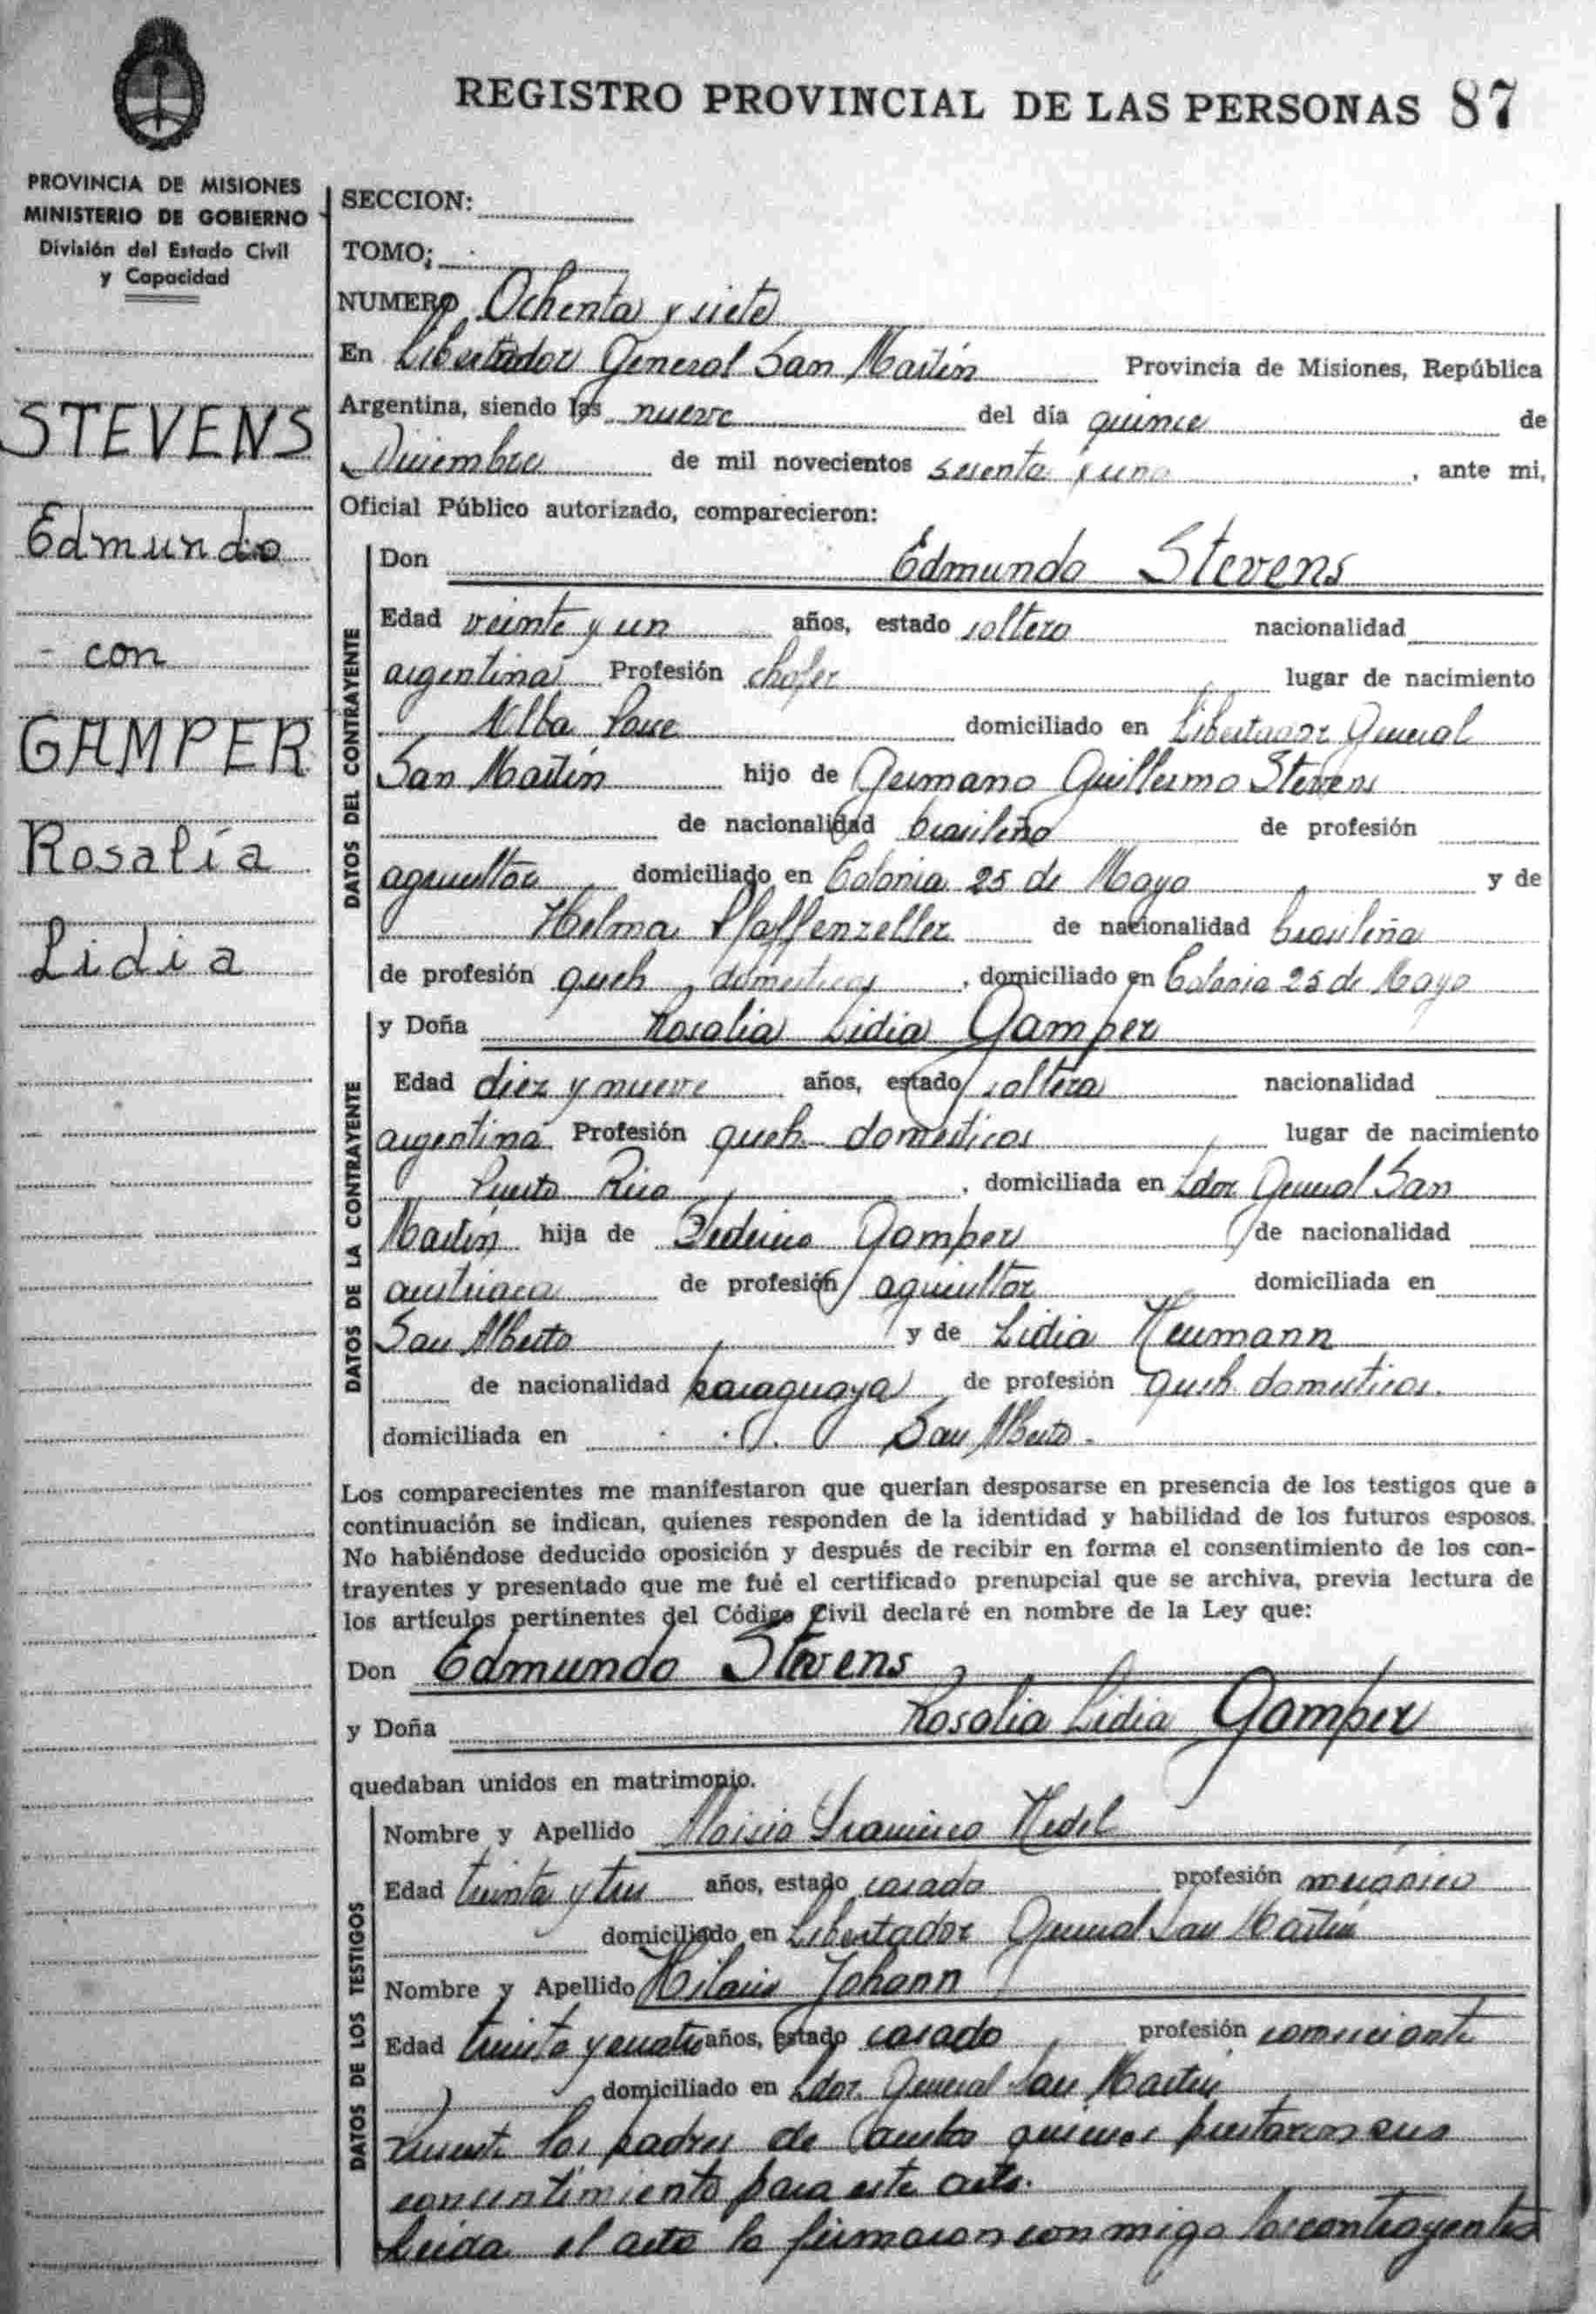 REGISTRO PROVINCIAL DE LAS PERSONAS 87
PROVINCIA DE MISIONES
MINISTERIO DE GOBIERNO
División del Estado Civil
y Capacidad
STEVENS
Edmundo
- con
GAMPER
Rosalía
Lidia
SECCION:
TOMO:
NUMERO Ochenta y siete
En Libertador General San Martín Provincia de Misiones, República
Argentina, siendo las nueve del día quince de
Diciembre de mil novecientos sesenta y uno, ante mi,
Oficial Público autorizado, comparecieron:
DATOS DEL CONTRAYENTE
Don Edmundo Stevens
Edad veinte y un años, estado soltero nacionalidad
argentina Profesión chofer lugar de nacimiento
Alba Posse domiciliado en Libertador General
San Martín hijo de Germano Guillermo Stevens
de nacionalidad brasileño de profesión
agricultor domiciliado en Colonia 25 de Mayo y de
Helma Pfaffenzeller de nacionalidad brasileña
de profesión queh. domesticos, domiciliado en Colonia 25 de Mayo
DATOS DE LA CONTRAYENTE
y Doña Rosalia Lidia Gamper
Edad diez y nueve años, estado soltera nacionalidad
argentina Profesión queh. domesticos lugar de nacimiento
Puerto Rico, domiciliada en Ldor. General San
Martín hija de Federico Gamper de nacionalidad
austriaca de profesión agricultor domiciliada en
San Alberto y de Lidia Neumann
de nacionalidad paraguaya de profesión queh. domesticos.
domiciliada en San Alberto.
Los comparecientes me manifestaron que querían desposarse en presencia de los testigos que a
continuación se indican, quienes responden de la identidad y habilidad de los futuros esposos.
No habiéndose deducido oposición y después de recibir en forma el consentimiento de los con-
trayentes y presentado que me fué el certificado prenupcial que se archiva, previa lectura de
los artículos pertinentes del Código Civil declaré en nombre de la Ley que:
Don Edmundo Stevens
y Doña Rosalia Lidia Gamper
quedaban unidos en matrimonio.
DATOS DE LOS TESTIGOS
Nombre y Apellido Aloisio Francisco Hedel
Edad treinta y tres años, estado casado profesión mecánico
domiciliado en Libertador General San Martín
Nombre y Apellido Hilario Johann
Edad treinta y cuatro años, estado casado profesión comerciante
domiciliado en Ldor. General San Martín
los padres de ambos quienes prestaron sus
consentimiento para este acto.
Leida el acta la firmaron conmigo los contrayentes